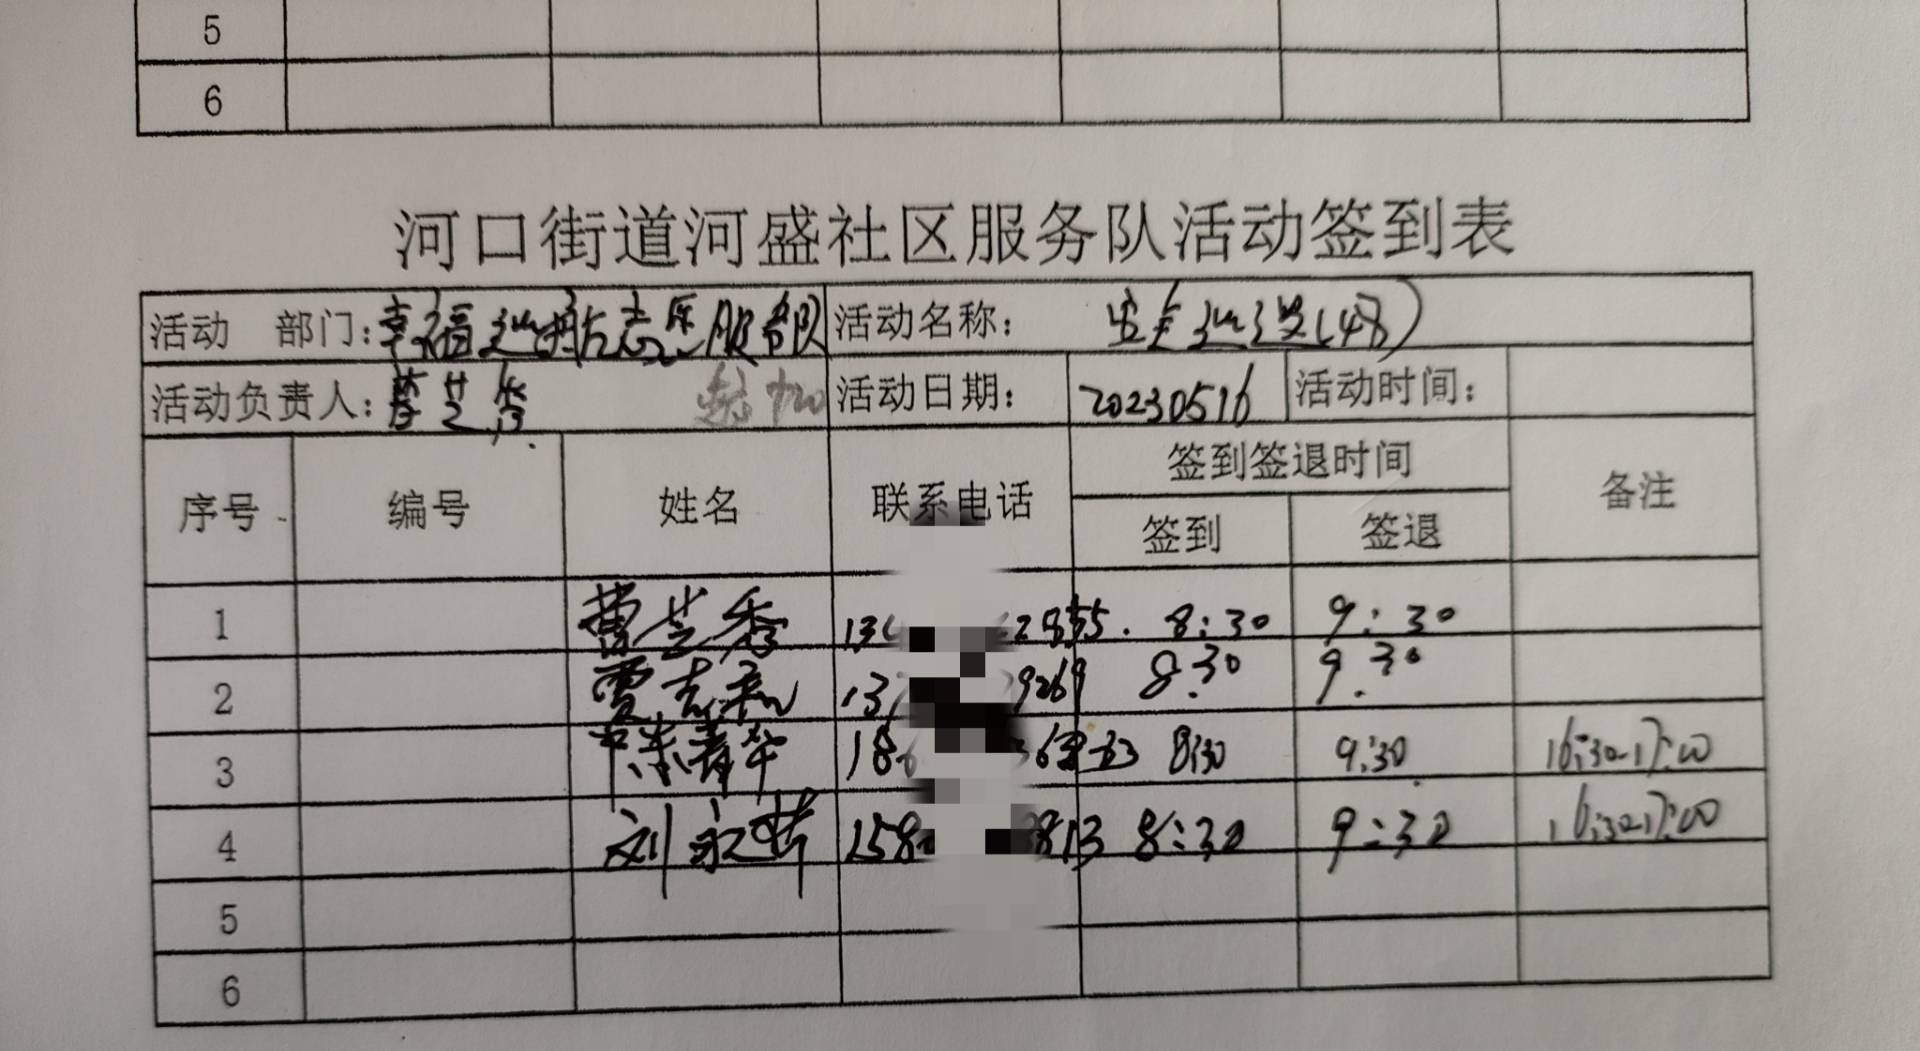 5
6
河口街道河盛社区服务队活动签到表
活动 部门: 幸福 志愿服务队 活动名称: (48)
活动负责人: 曹芝秀 活动日期: 20230516 活动时间:
序号 编号 姓名 联系电话 签到签退时间 备注
签到 签退
1 曹芝秀 13 2855. 8:30 9:30
2 贾志 137 9269 8:30 9.30
3 青华 186 8:30 9:30 16:30-17:00
4 刘永 158 813 8:30 9:30 16:30-17:00
5
6